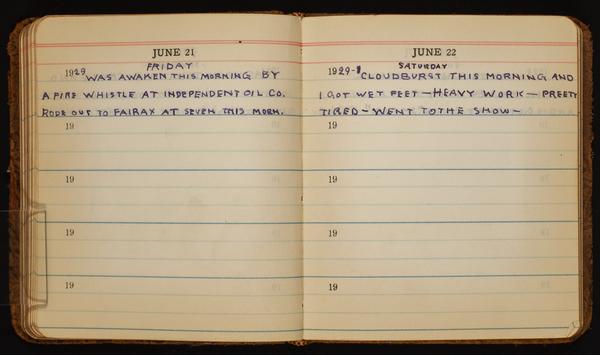 JUNE 21
FRIDAY
1929 WAS AWAKEN THIS MORNING BY
A FIRE WHISTLE AT INDEPENDENT OIL CO.
RODE OUT TO FAIRAX AT SEVEN THIS MORN.
19
19
19
19
JUNE 22
SATURDAY
1929- CLOUDBURST THIS MORNING AND
I GOT WET FEET - HEAVY WORK - PREETY
TIRED - WENT TO THE SHOW -
19
19
19
19